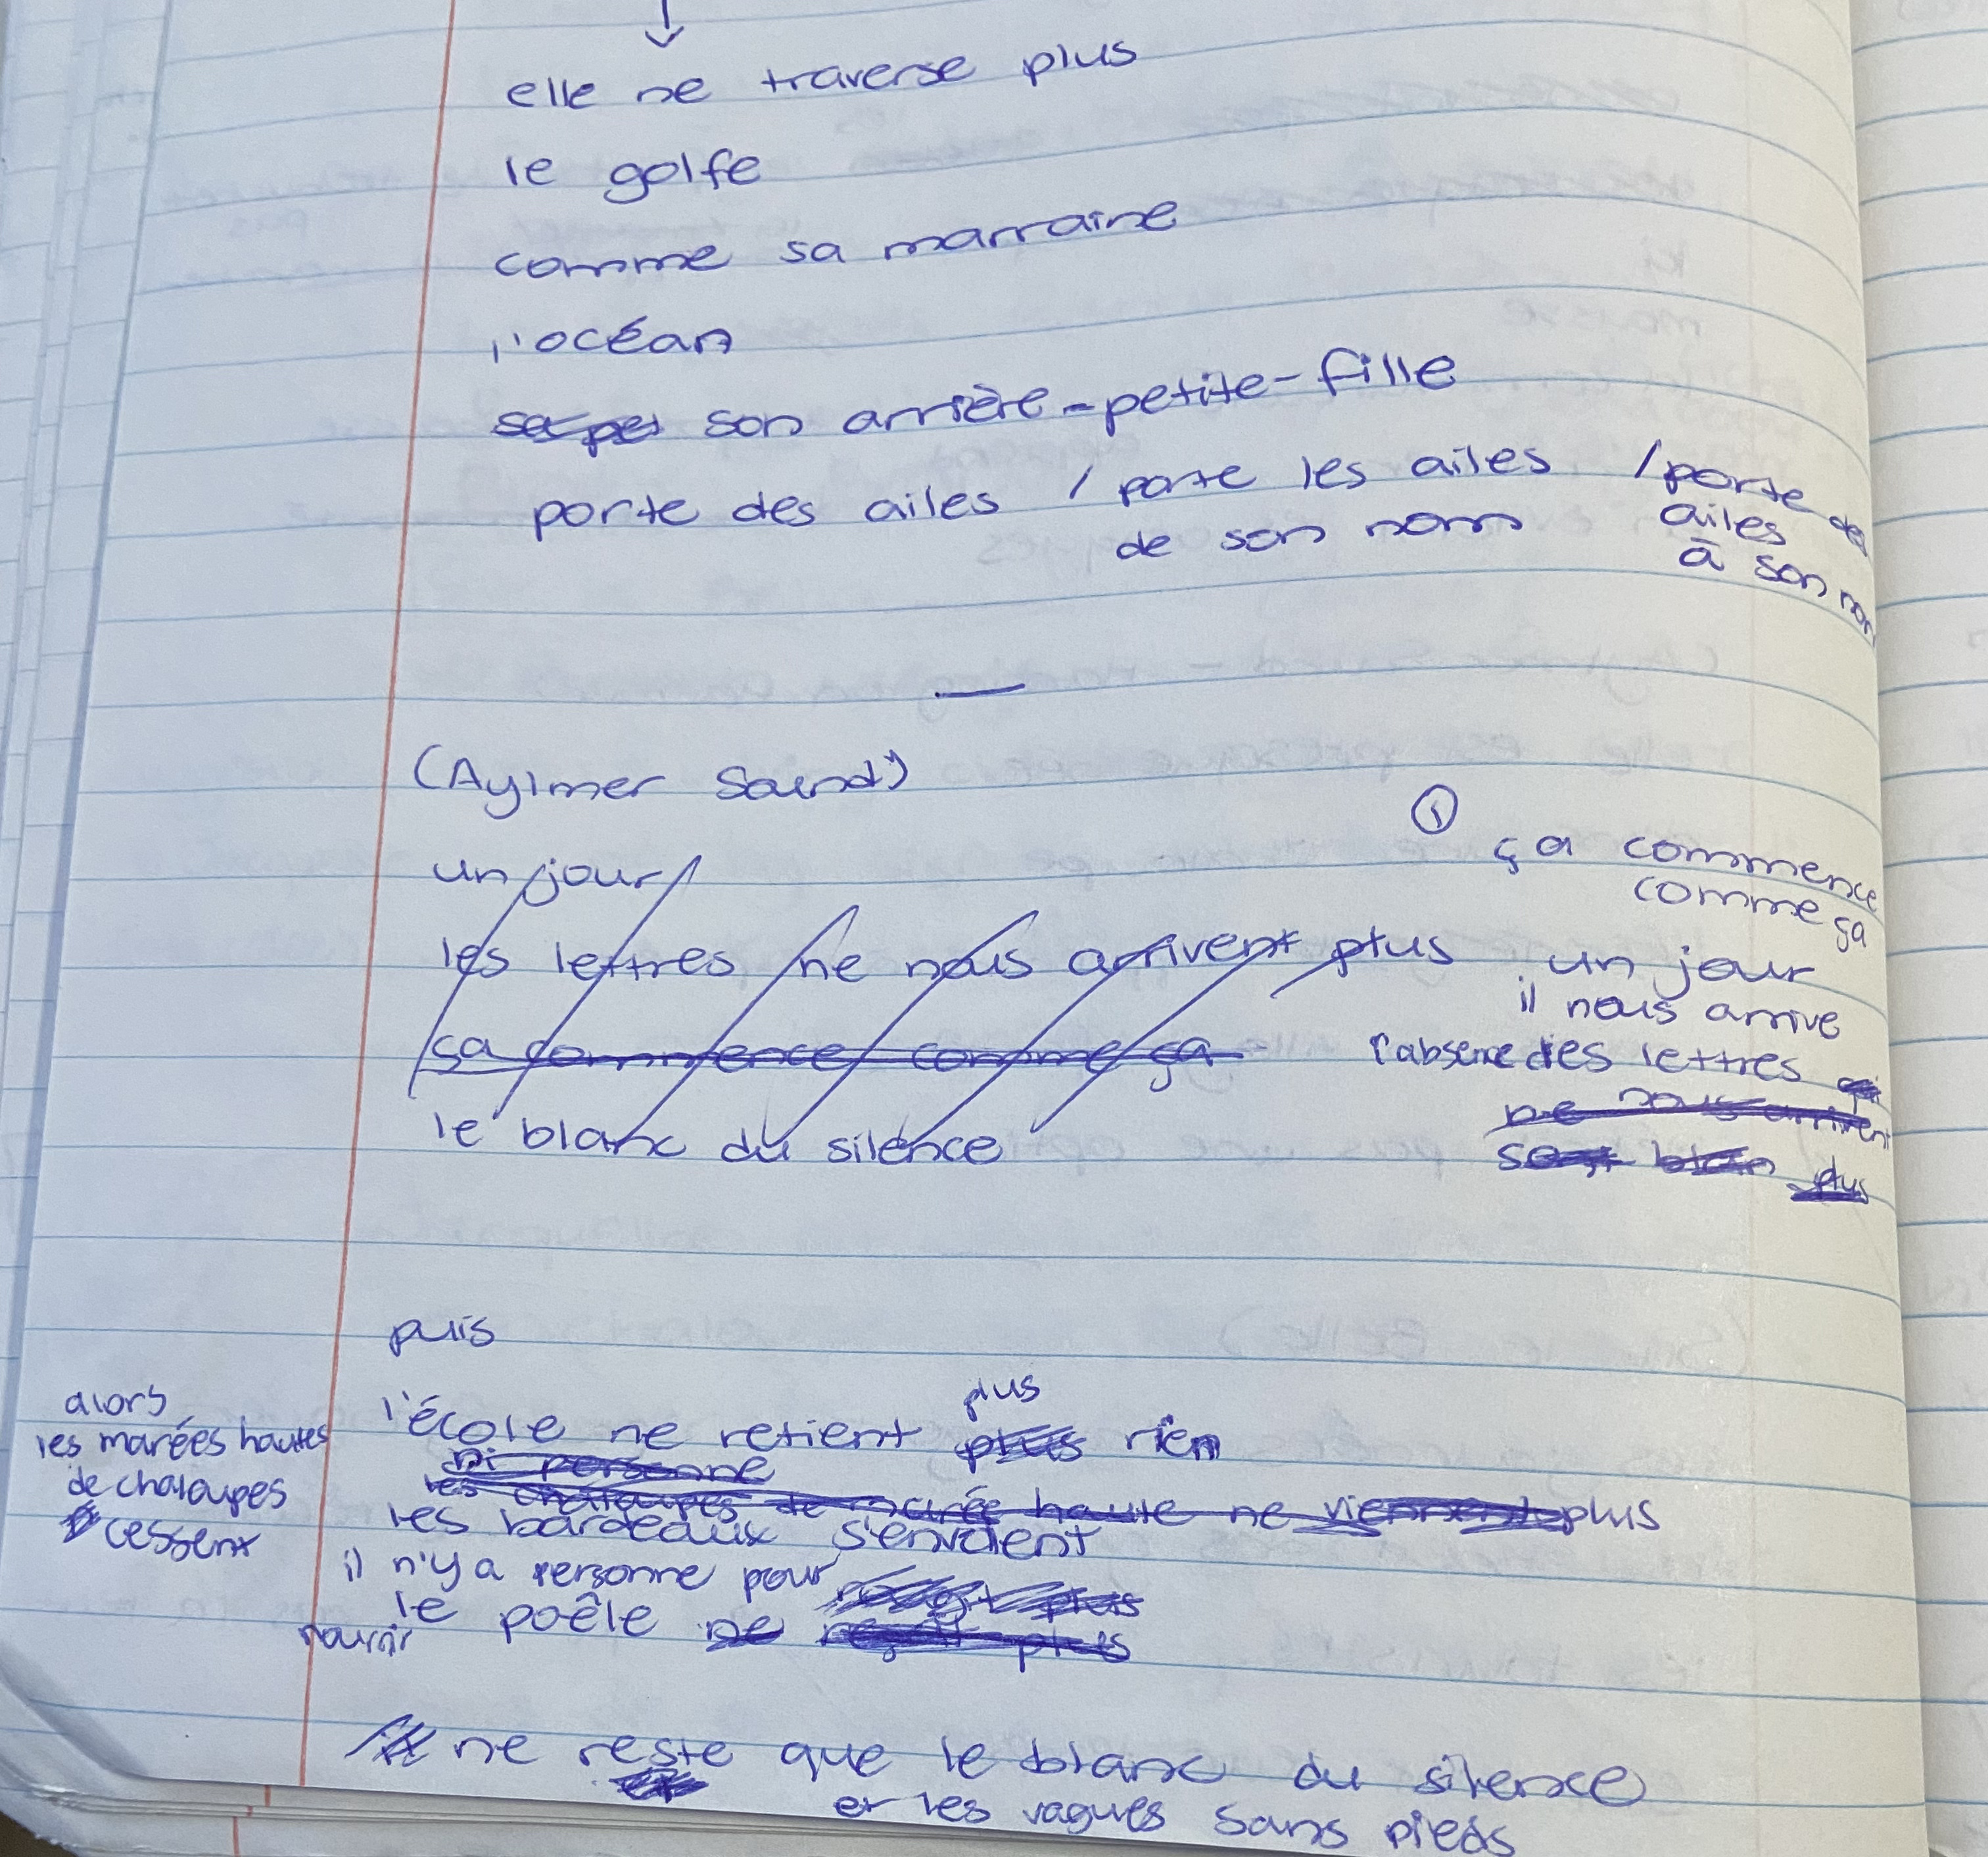 elle ne traverse plus
le golfe
comme sa marraine
l'océan
son arrière-petite-fille
porte des ailes / porte les ailes de son nom / porte des ailes à son nom
(Aylmer Sound)
un jour
les lettres ne nous arrivent plus
ça commence comme ça
le blanc du silence
①
ça commence
comme ça
un jour
il nous arrive
l'absence des lettres
ne nous arrivent
plus
puis
alors
les marées hautes
de chaloupes
cessent
plus
l'école ne retient plus rien
ni personne
les chaloupes de marée haute ne viennent plus
les bardeaux s'envolent
il n'y a personne pour
nourrir
le poêle ne reçoit plus
ne reste que le blanc du silence
et les vagues sans pieds